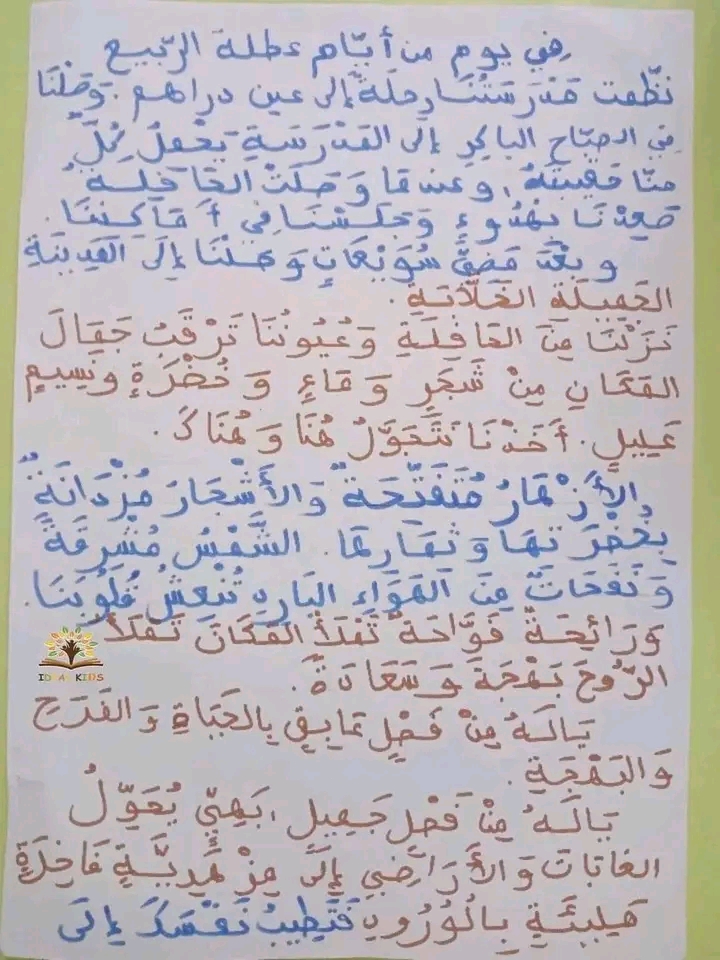 في يوم من أيّام عطلة الرّبيع
نظّمت مَدْرَسَتُنَا رحلَةً إلى عين دراهم. وَصَلْنَا
في الصّباح الباكِرِ إلى المَدْرَسَةِ يَحْمِلُ كُلٌّ
منّا حقيبتَهُ، وعندما وَصَلَتْ الحَافِلَةُ
صَعِدْنَا بِهُدُوءٍ وَجَلَسْنَا فِي أَمَاكِنِنَا.
وبعْدَ مُضِيِّ سُوَيْعَاتٍ وَصَلْنَا إِلَى المَدِينَةِ
الجَمِيلَةِ الخَلَّابَةِ.
نَزَلْنَا مِنَ الحَافِلَةِ وَعُيُونُنَا تَرْقُبُ جَمَالَ
المَكَانِ مِنْ شَجَرٍ وَمَاءٍ وَخُضْرَةٍ ونَسِيمٍ
عَلِيلٍ. أَخَذْنَا نَتَجَوَّلُ هُنَا وَهُنَاكَ.
الأَزْهَارُ مُتَفَتِّحَةٌ وَالأَشْجَارُ مُزْدَانَةٌ
بِخُضْرَتِهَا وَثِمَارِهَا. الشَّمْسُ مُشْرِقَةٌ
وَنَفَحَاتٌ مِنَ الهَوَاءِ البَارِدِ تُنْعِشُ قُلُوبَنَا.
وَرَائِحَةٌ فَوَّاحَةٌ تَمْلَأُ المَكَانَ تَمْلَأُ
الرُّوحَ بَهْجَةً وَسَعَادَةً.
يَالَهُ مِنْ فَصْلٍ عَابِقٍ بِالحَيَاةِ وَالفَرَحِ
وَالبَهْجَةِ.
يَالَهُ مِنْ فَصْلٍ جَمِيلٍ، بَهِيٍّ يُحَوِّلُ
الغابَاتِ وَالأَرَاضِي إِلَى مِزْهَرِيَّةٍ فَاخِرَةٍ
مَلِيئَةٍ بِالوُرُودِ فَتَطِيبُ نَفْسُكَ إِلَى
IDEA KIDS